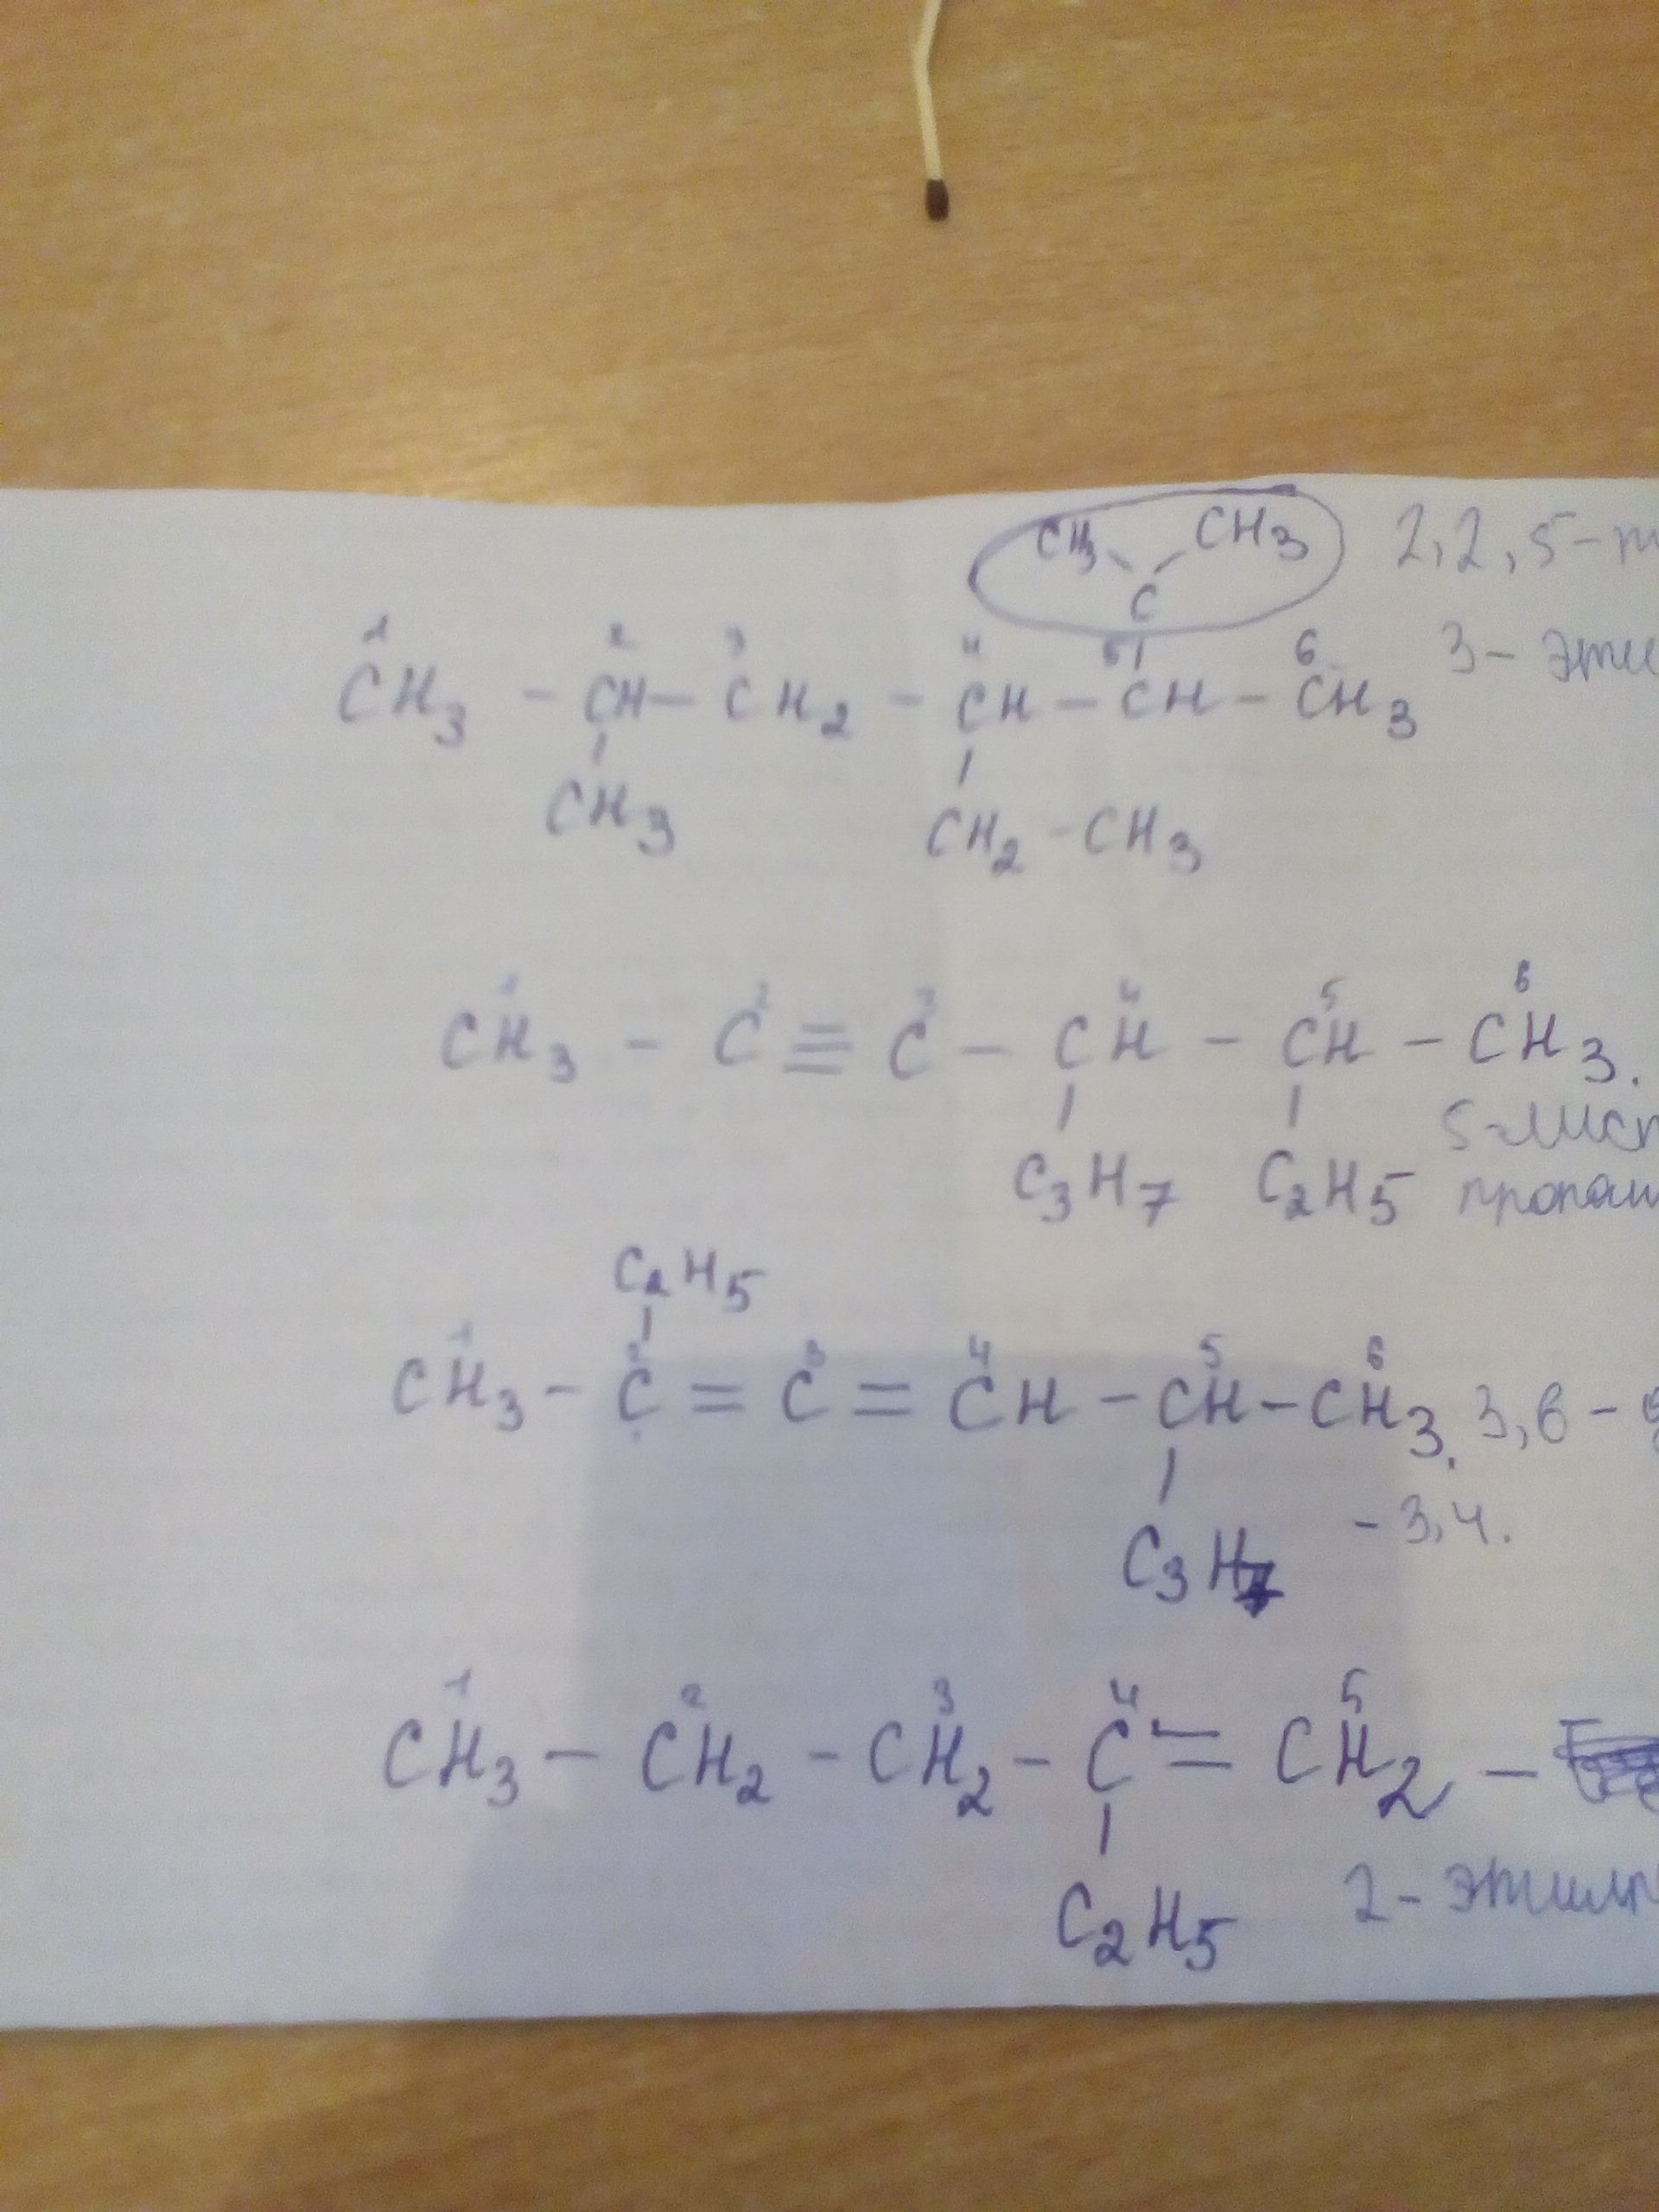 CH3 CH3 2,2,5-
C
1 2 3 4 5 6 3-
CH3 - CH - CH2 - CH - CH - CH3
CH3 CH2 - CH3
1 2 3 4 5 6
CH3 - C ≡ C - CH - CH - CH3.
5-
C3H7 C2H5
C2H5
1 2 3 4 5 6
CH3 - C = C = CH - CH - CH3. 3,6-
- 3,4.
C3H7
1 2 3 4 5
CH3 - CH2 - CH2 - C = CH2 -
C2H5 2-